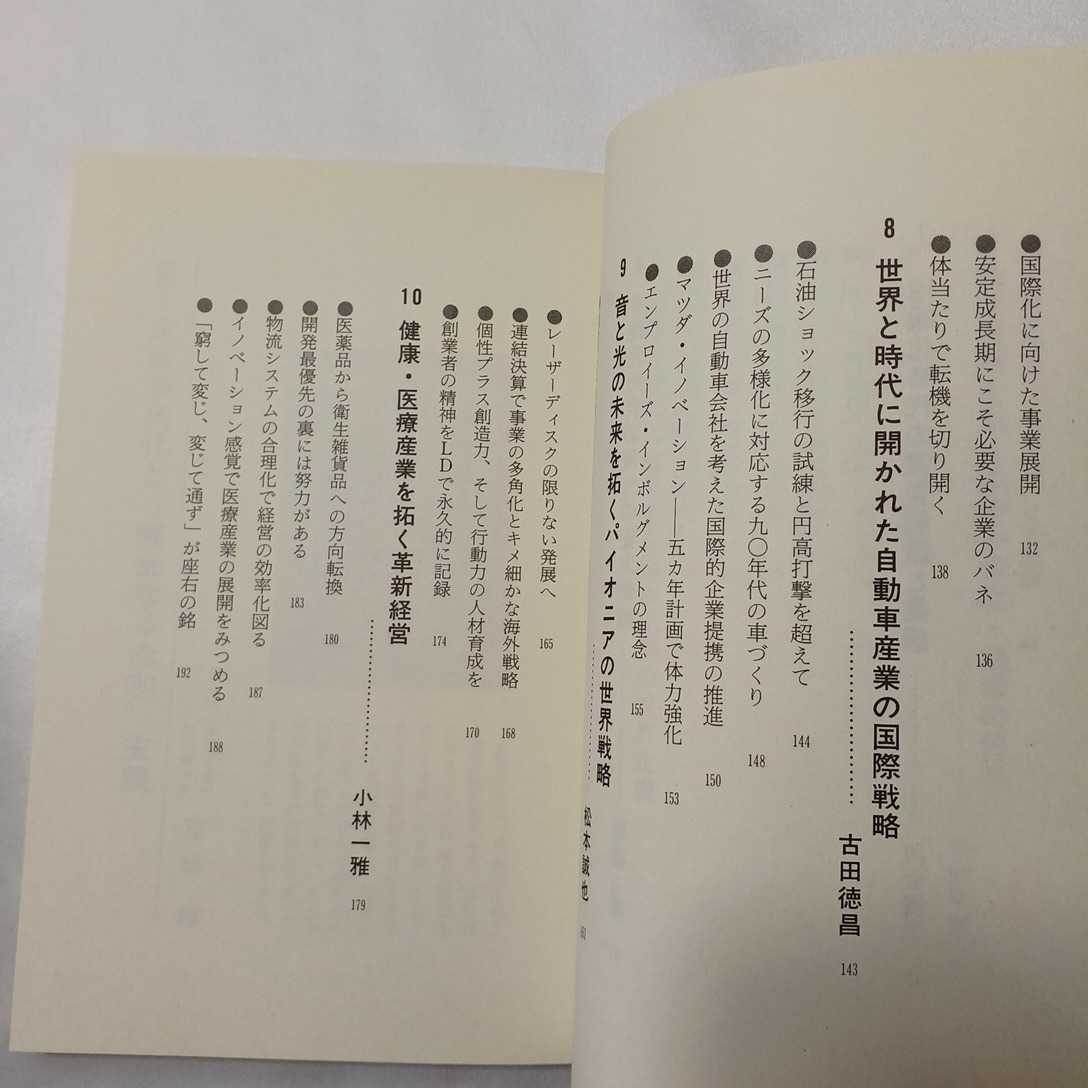 ●国際化に向けた事業展開 132
●安定成長期にこそ必要な企業のバネ 136
●体当たりで転機を切り開く 138
8 世界と時代に開かれた自動車産業の国際戦略
古田徳昌 143
●石油ショック移行の試練と円高打撃を超えて 144
●ニーズの多様化に対応する九〇年代の車づくり 148
●世界の自動車会社を考えた国際的企業提携の推進 150
●マツダ・イノベーション——五カ年計画で体力強化 153
●エンプロイーズ・インボルグメントの理念 155
9 音と光の未来を拓くパイオニアの世界戦略
松本誠也
●レーザーディスクの限りない発展へ 165
●連結決算で事業の多角化とキメ細かな海外戦略 168
●個性プラス創造力、そして行動力の人材育成を 170
●創業者の精神をLDで永久的に記録 174
10 健康・医療産業を拓く革新経営
小林一雅 179
●医薬品から衛生雑貨品への方向転換 180
●開発最優先の裏には努力がある 183
●物流システムの合理化で経営の効率化図る 187
●イノベーション感覚で医療産業の展開をみつめる 188
●「窮して変じ、変じて通ず」が座右の銘 192